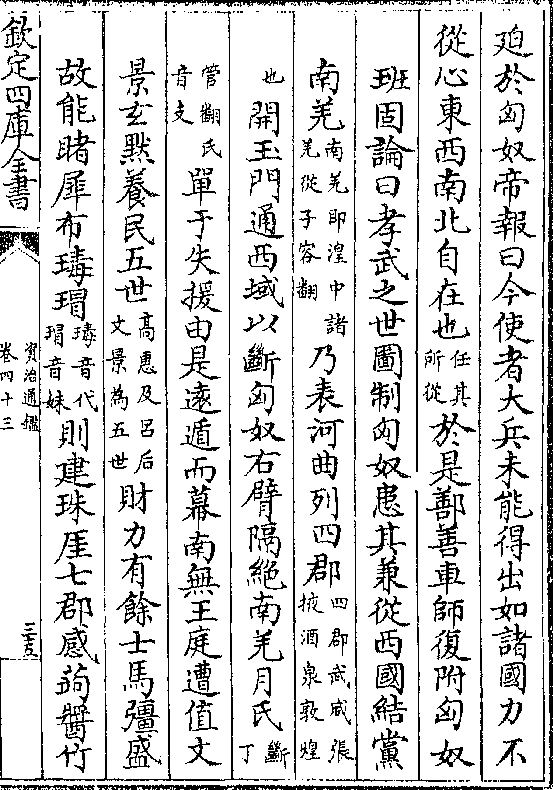 迫於匈奴帝報曰今使者大兵未能得出如諸國力不
從心東西南北自在也任其所從於是鄯善車師復附匈奴
班固論曰孝武之世圖制匈奴患其兼從西國結黨
南羌南羌即湟中諸羌從子容翻乃表河曲列四郡四郡武威張掖酒泉敦煌
也開玉門通西域以斷匈奴右臂隔絶南羌月氏斷丁
管翻氏音支單于失援由是遠遁而幕南無王庭遭值文
景玄黙養民五世髙惠及吕后文景為五世財力有餘士馬彊盛
故能睹犀布瑇瑁瑇音代瑁音妹則建珠厓七郡感蒟醬竹
欽定四庫全書
資治通鑑
卷四十三
三五